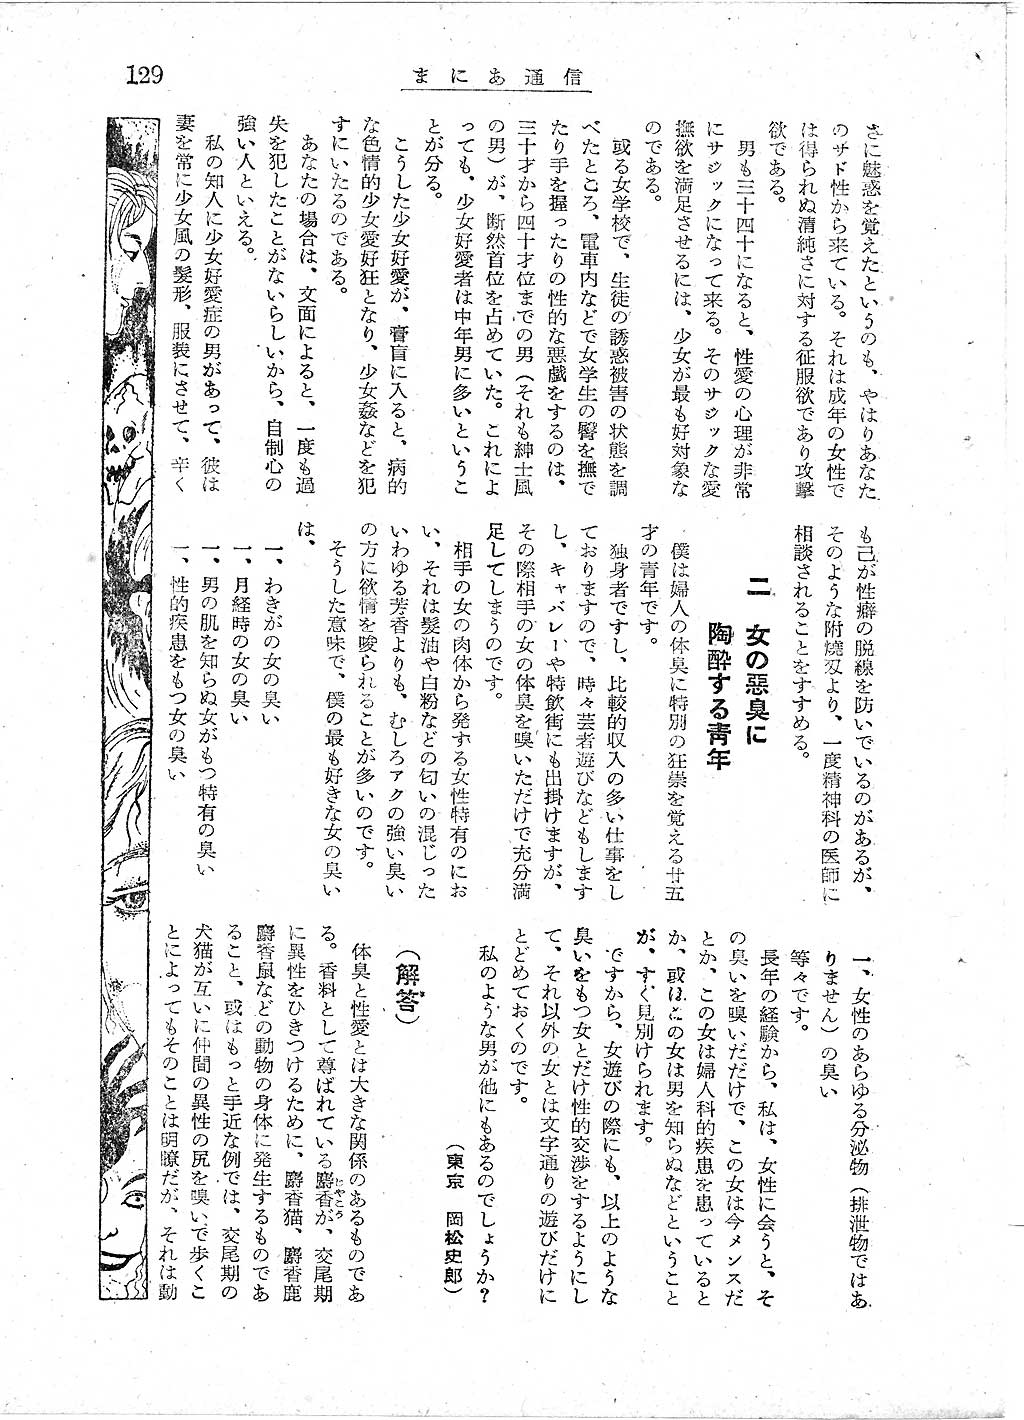 129
まにあ通信
さに魅惑を覚えたというのも、やはりあなた
のサド性から来ている。それは成年の女性で
は得られぬ清純さに対する征服欲であり攻撃
欲である。
男も三十四十になると、性愛の心理が非常
にサジックになって来る。そのサジックな愛
撫欲を満足させるには、少女が最も好対象な
のである。
或る女学校で、生徒の誘惑被害の状態を調
べたところ、電車内などで女学生の臀を撫で
たり手を握ったりの性的な悪戯をするのは、
三十才から四十才位までの男(それも紳士風
の男)が、断然首位を占めていた。これによ
っても、少女好愛者は中年男に多いというこ
とが分る。
こうした少女好愛が、膏盲に入ると、病的
な色情的少女愛好狂となり、少女姦などを犯
すにいたるのである。
あなたの場合は、文面によると、一度も過
失を犯したことがないらしいから、自制心の
強い人といえる。
私の知人に少女好愛症の男があって、彼は
妻を常に少女風の髪形、服装にさせて、辛く
も己が性癖の脱線を防いでいるのがあるが、
そのような附燒刄より、一度精神科の医師に
相談されることをすすめる。
二 女の惡臭に
陶酔する靑年
僕は婦人の体臭に特別の狂崇を覚える廿五
才の青年です。
独身者ですし、比較的収入の多い仕事をし
ておりますので、時々芸者遊びなどもします
し、キャバレーや特飲街にも出掛けますが、
その際相手の女の体臭を嗅いただけで充分満
足してしまうのです。
相手の女の肉体から発する女性特有のにお
い、それは髪油や白粉などの匂いの混じった
いわゆる芳香よりも、むしろアクの強い臭い
の方に欲情を唆られることが多いのです。
そうした意味で、僕の最も好きな女の臭い
は、
一、わきがの女の臭い
一、月経時の女の臭い
一、男の肌を知らぬ女がもつ特有の臭い
一、性的疾患をもつ女の臭い
一、女性のあらゆる分泌物(排泄物ではあ
りません)の臭い
等々です。
長年の経験から、私は、女性に会うと、そ
の臭いを嗅いだだけで、この女は今メンスだ
とか、この女は婦人科的疾患を患っていると
か、或はこの女は男を知らぬなどということ
が、すぐ見別けられます。
ですから、女遊びの際にも、以上のような
臭いをもつ女とだけ性的交渉をするようにし
て、それ以外の女とは文字通りの遊びだけに
とどめておくのです。
私のような男が他にもあるのでしょうか?
(東京 岡松史郎)
(解答)
体臭と性愛とは大きな関係のあるものであ
る。香料として尊ばれている麝香が、交尾期
じやこう
に異性をひきつけるために、麝香猫、麝香鹿
麝香鼠などの動物の身体に発生するものであ
ること、或はもっと手近な例では、交尾期の
犬猫が互いに仲間の異性の尻を嗅いで歩くこ
とによってもそのことは明瞭だが、それは動